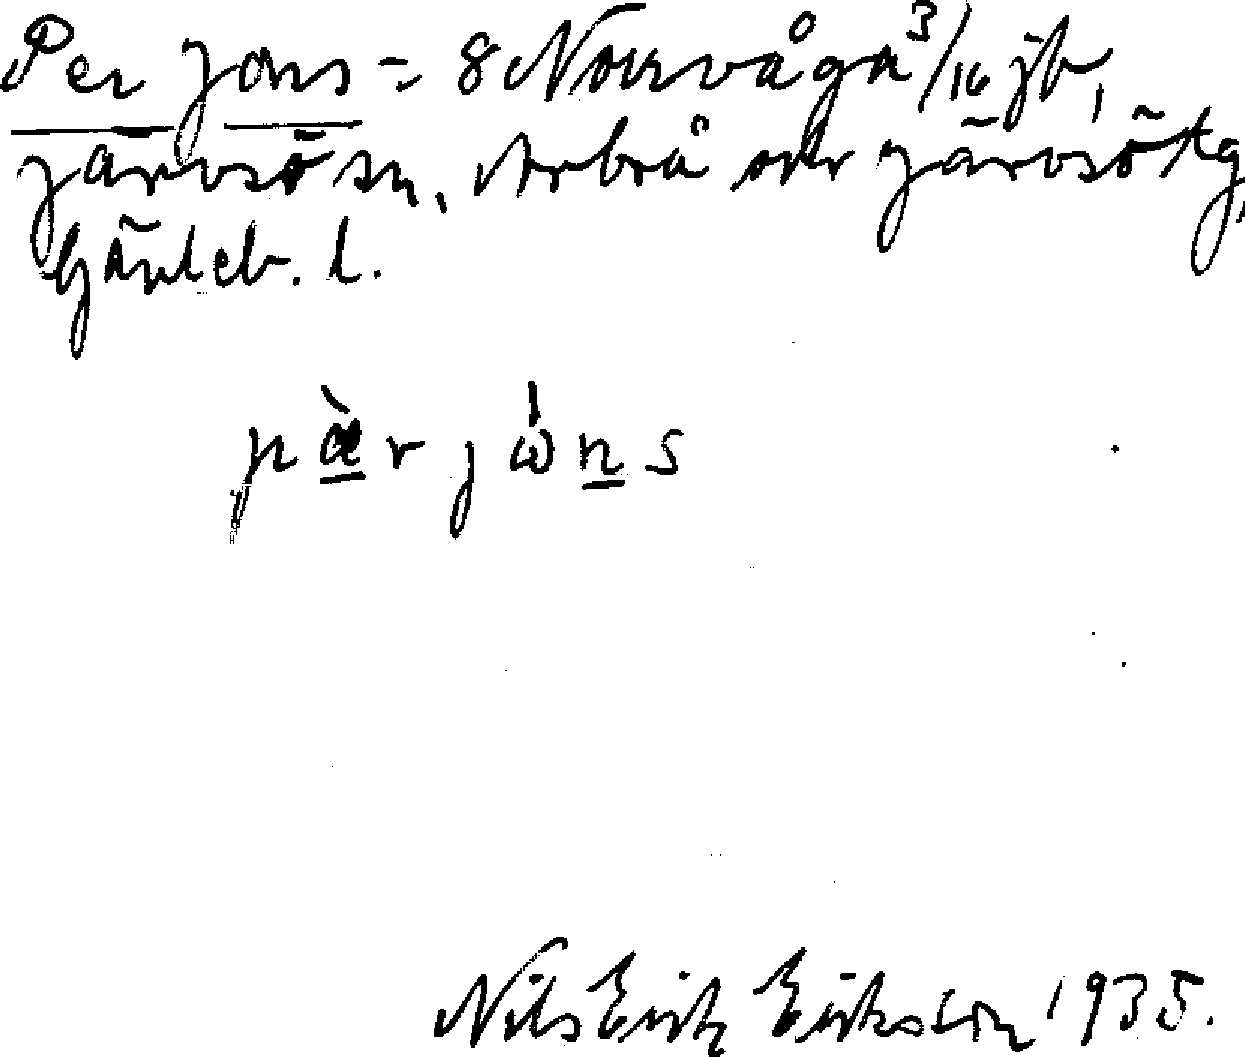 Per Jons = 8 Norrvåga 3/16 jb,
Järvsö sn, Arbrå och Järvsö tg,
Gävleb. l.
pæ̀r jώns
Nils Erik Eriksson 1935.